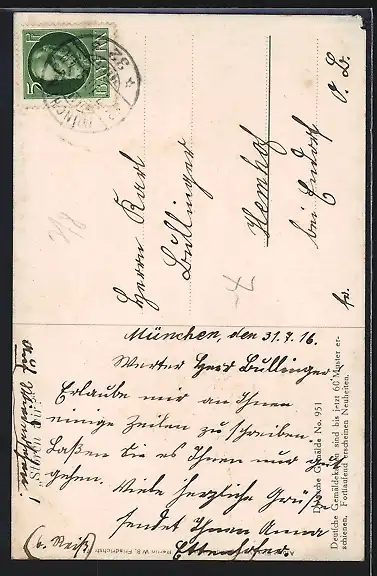 5 PF
BAYERN
Herrn Karl
Bullinger
Hemhof
bei Endorf
O. B.
München, den 31.7.16.
Werter Herr Bullinger
Erlaube mir an Ihnen
einige Zeilen zu schreiben.
Laßen Sie es Ihnen nur gut
gehen. Viele herzliche Grüße
sendet Ihnen Anna
Ettenhofer.
Deutsche Gemälde No. 951
Deutsche Gemäldekarten sind bis jetzt 60 Muster er-
schienen. Fortlaufend erscheinen Neuheiten.